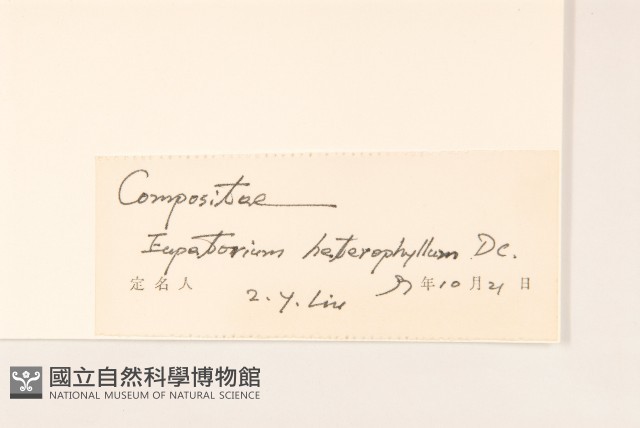 Compositae
Eupatorium heterophyllum DC.
定名人 Z. Y. Liu 年10月21日
國立自然科學博物館
NATIONAL MUSEUM OF NATURAL SCIENCE